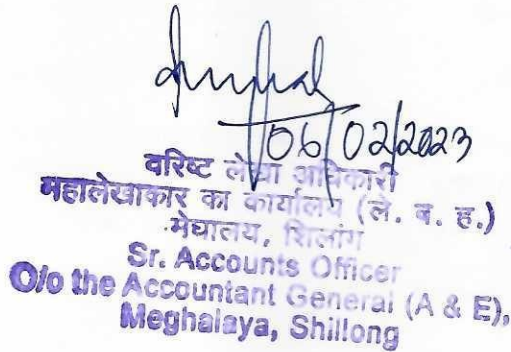 06/02/2023
वरिष्ट लेखा अधिकारी
महालेखाकार का कार्यालय (ले. व. ह.)
मेघालय, शिलांग
Sr. Accounts Officer
O/o the Accountant General (A & E),
Meghalaya, Shillong